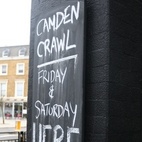 CAMDEN
CRAWL
FRIDAY
&
SATURDAY
HERE